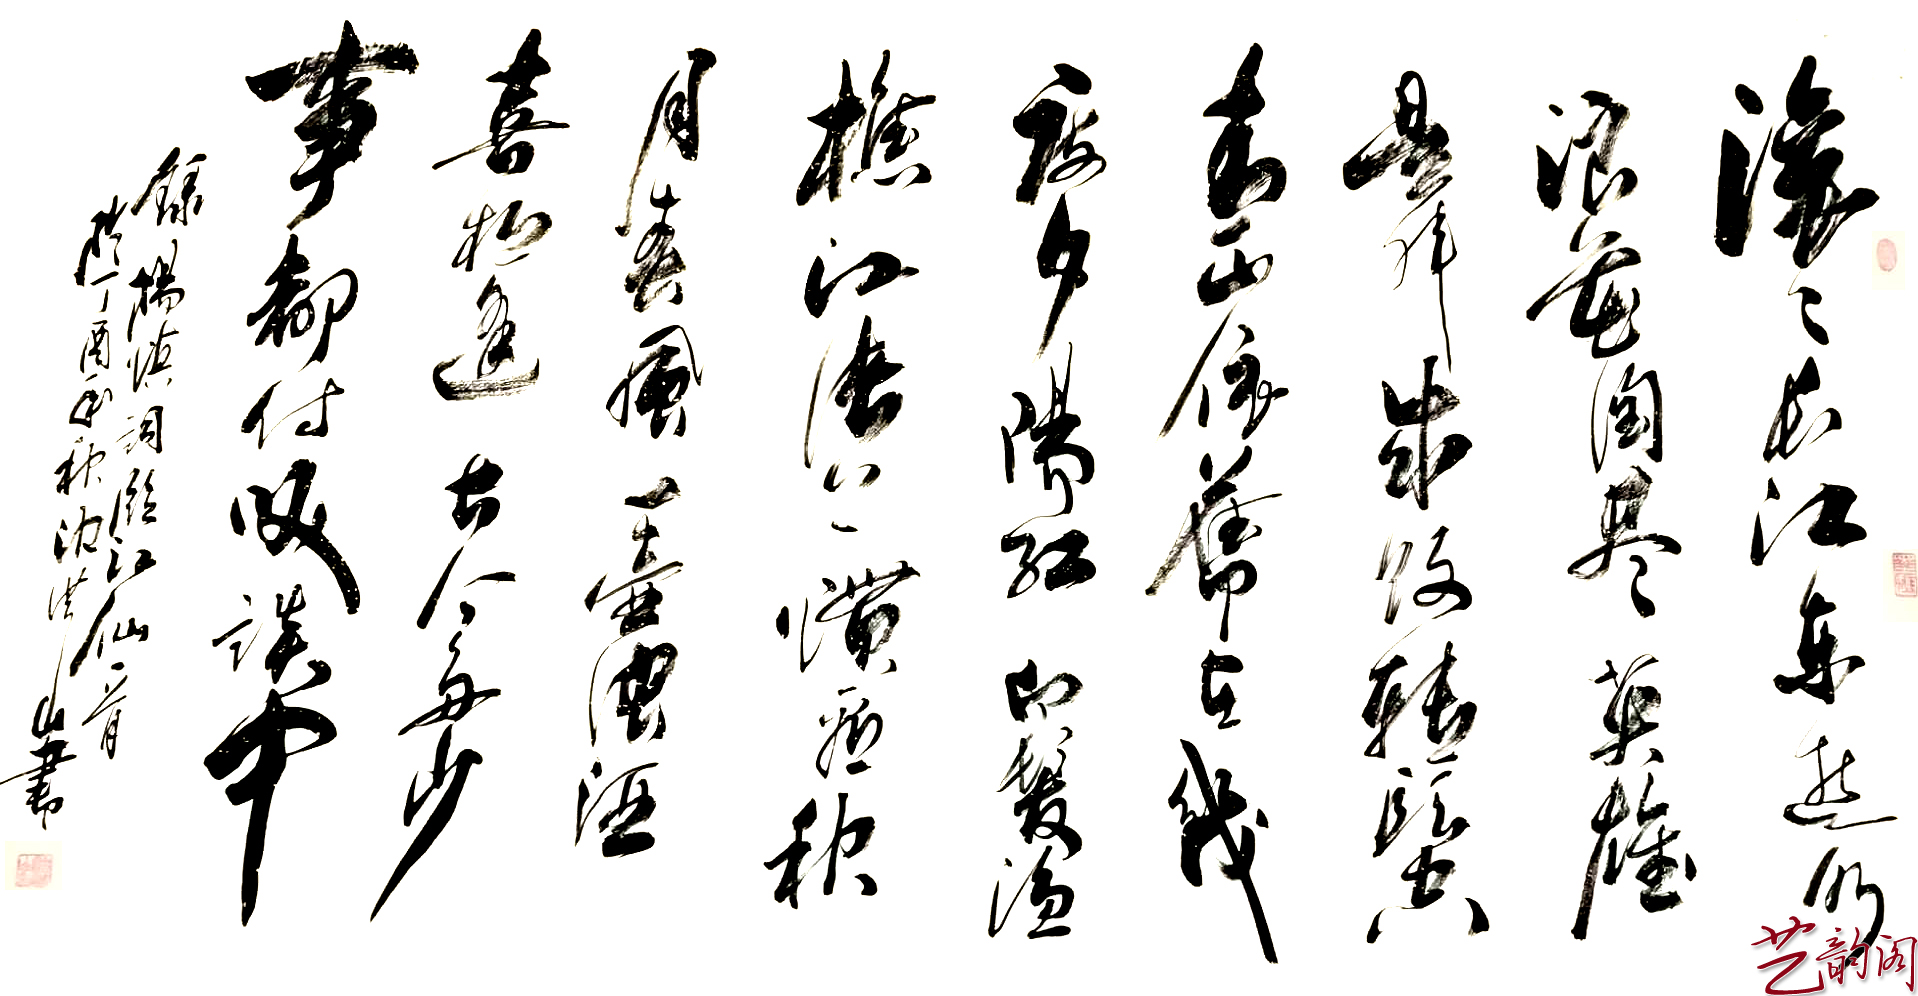 滚滚长江东逝水
浪花淘尽英雄
是非成败转頭空
青山依舊在幾
度夕陽红白髮渔
樵江渚上惯看秋
月春風一壶濁酒
喜相逢古今多少
事都付笑談中
錄楊慎詞臨江仙一首
於丁酉年秋沈洪山書
艺韵阁